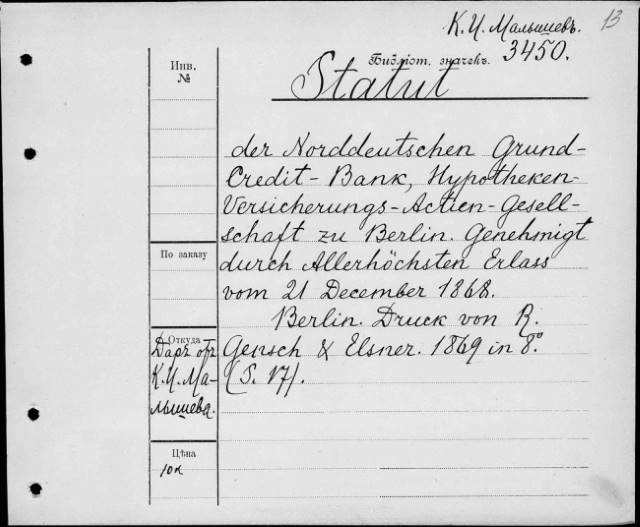 К. И. Малышевъ. 13
Библіот. значекъ. 3450.
Инв.
№
Statut
der Norddeutschen Grund-
Credit-Bank, Hypotheken-
Versicherungs-Actien-Gesell-
schaft zu Berlin. Genehmigt
По заказу
durch Allerhöchsten Erlass
vom 21 December 1868.
Berlin. Druck von R.
Откуда
Gensch & Elsner. 1869 in 8°.
(S. 17).
Даръ отъ
К. И. Ма-
лышева.
Цѣна
10к